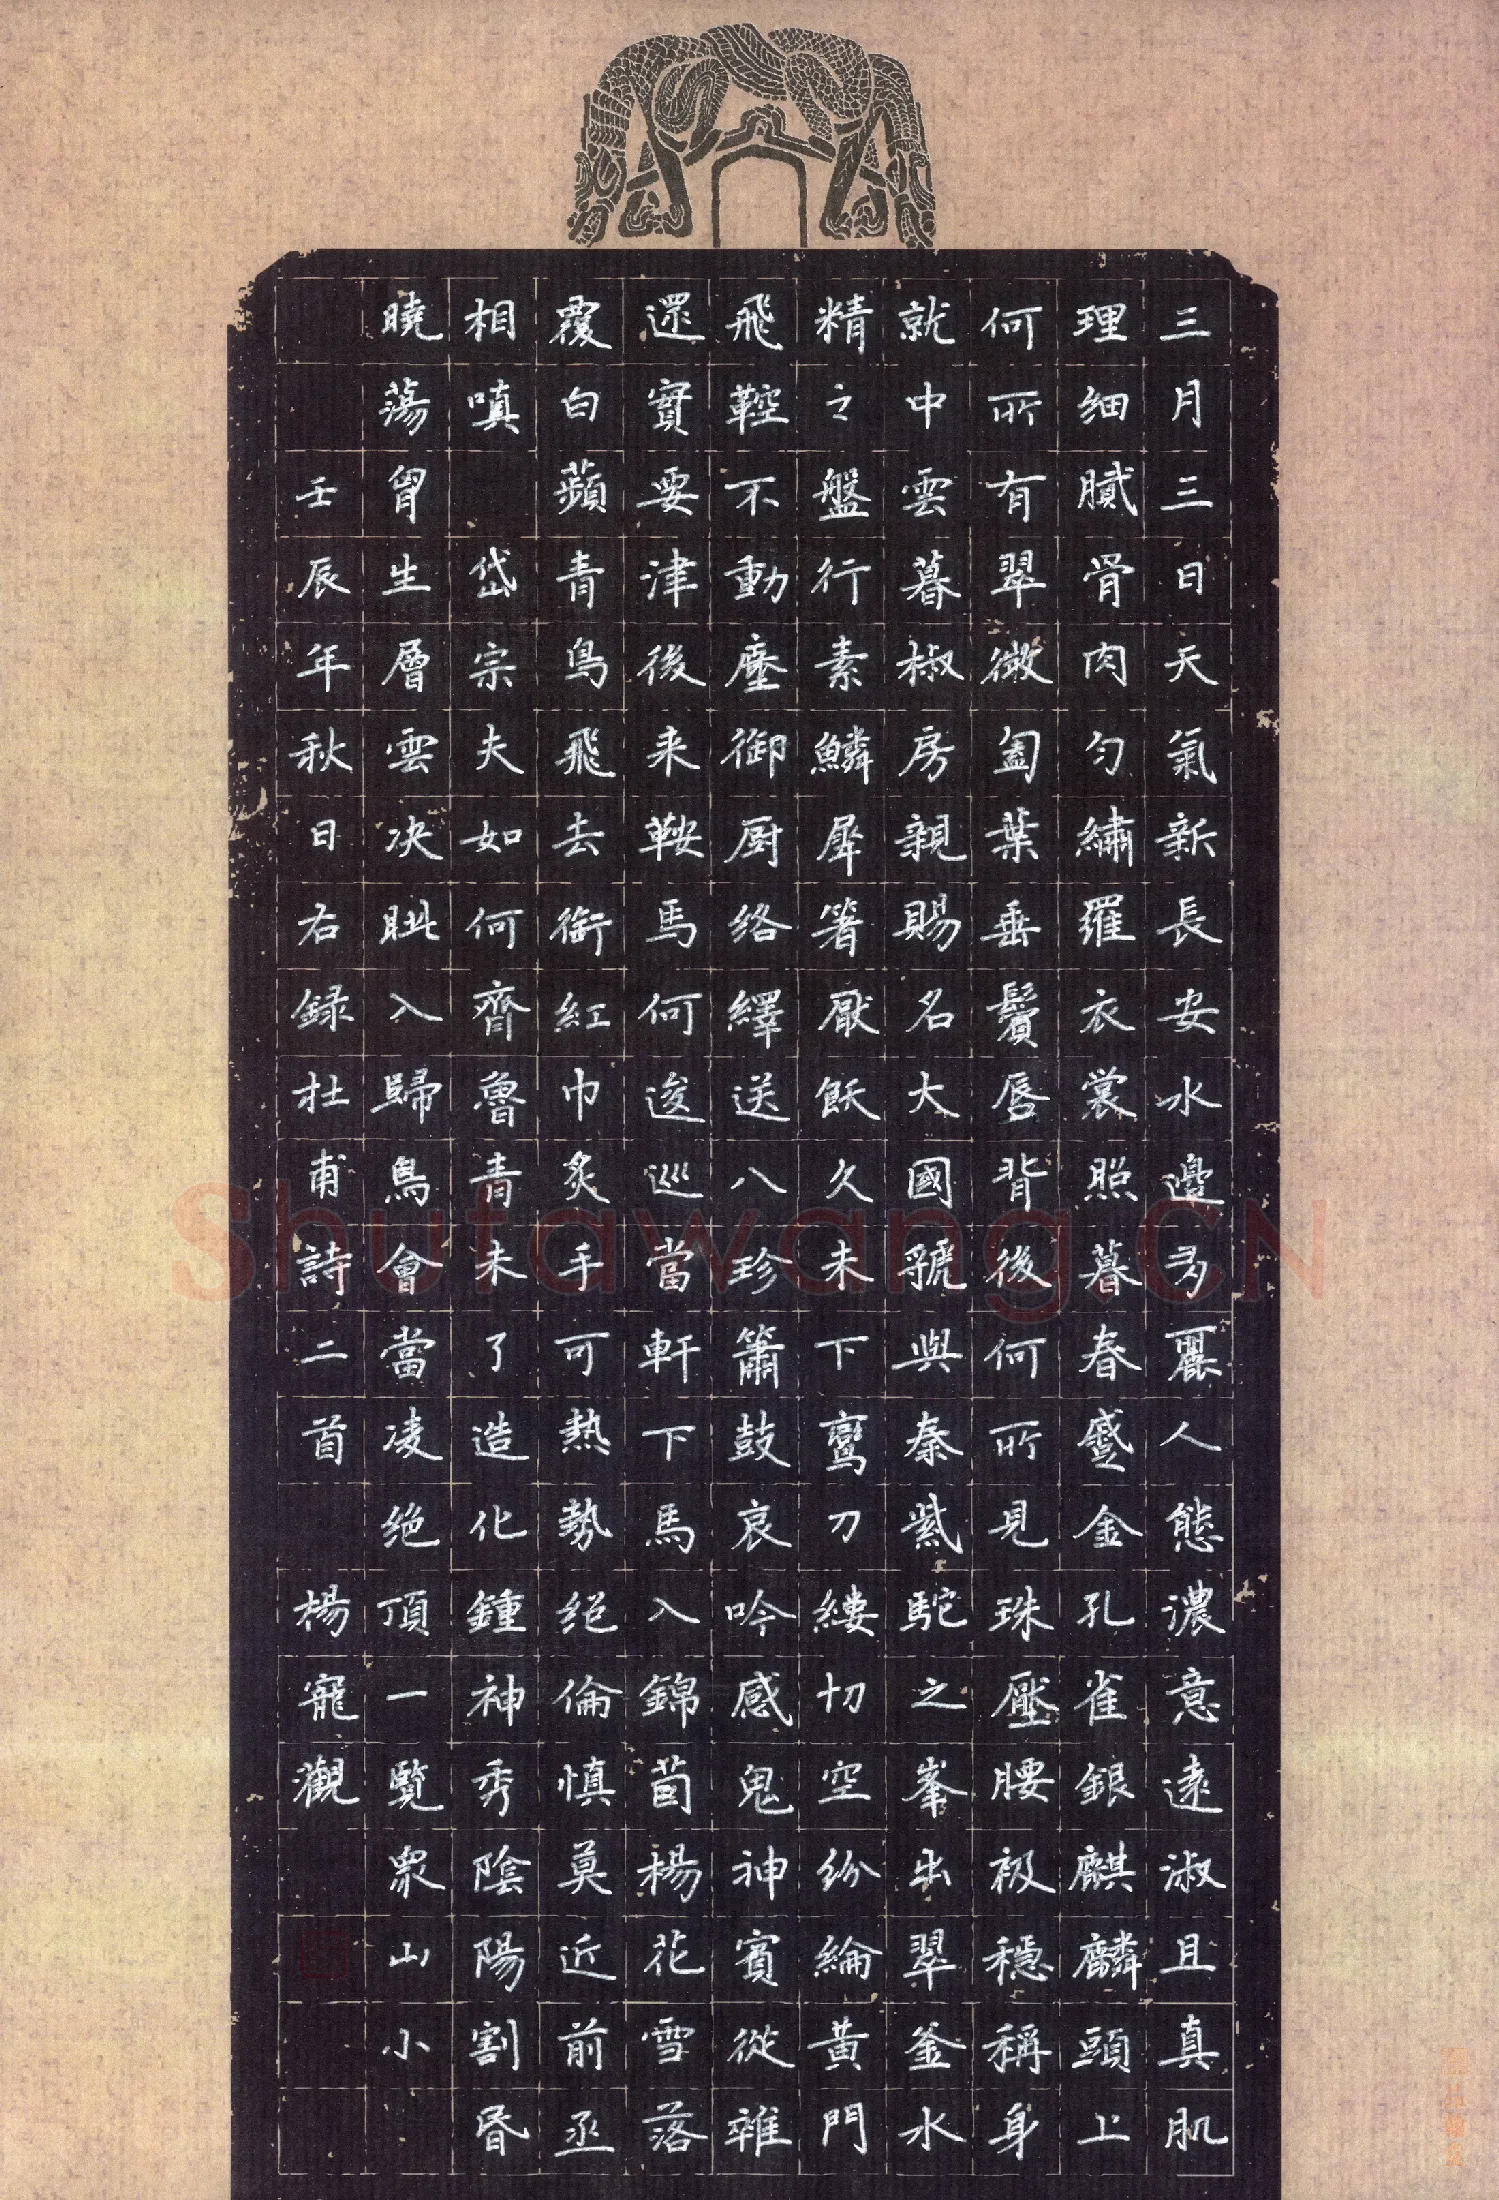 三月三日天氣新長安水邊多麗人態濃意遠淑且真肌
理細膩骨肉勻繡羅衣裳照暮春蹙金孔雀銀麒麟頭上
何所有翠微匎葉垂鬢唇背後何所見珠壓腰衱穩稱身
就中雲暮椒房親賜名大國虢與秦紫駝之峯出翠釜水
精之盤行素鱗犀箸厭飫久未下鸞刀縷切空紛綸黃門
飛鞚不動塵御厨絡繹送八珍簫鼓哀吟感鬼神賓從雜
還實要津後来鞍馬何逡巡當軒下馬入錦茵楊花雪落
覆白蘋青鳥飛去銜紅巾炙手可熱勢绝倫慎莫近前丞
相嗔 岱宗夫如何齊魯青未了造化鍾神秀陰陽割昏
曉蕩胷生層雲决眦入歸鳥會當凌绝頂一覽眾山小
壬辰年秋日右録杜甫詩二首 楊寵觀
Shufawang.CN